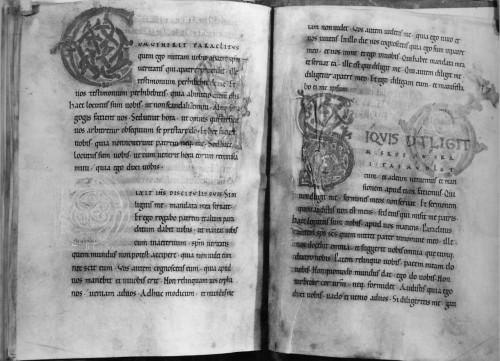 UM VENERIT PARACLITUS
quem ego mittam uobis a patre spm
ueritatis qui a patre procedit · ille
testimonium perhibebit de me · &
uos testimonium perhibebitis · quia ab initio mecum estis ·
haec locutus sum uobis · ut non scandalizemini · Absq: syna
gogis facient uos · Sed uenit hora · ut omnis qui interficit
uos arbitretur obsequium se prestare do · Et haec facient
uobis · quia non nouerunt patrem neq: me · Sed haec
locutus sum uobis · ut cum uenerit hora eorum reminisca
mini · quia ego dixi uobis ·
DIXIT IHS DISCIPULIS SUIS Si di
ligitis me · mandata mea seruate ·
& ego rogabo patrem & alium para
clitum dabit uobis · ut maneat uobis
cum in aeternum · spm ueritatis
quem mundus non potest accipere · quia non uidet eum
nec scit eum · Vos autem cognoscetis eum · quia apud
uos manebit & in uobis erit · Non relinquam uos orpha
nos · ueniam ad uos · Adhuc modicum · & mundus me
iam non uidet · Vos autem uidetis me · quia ego uiuo &
uos uiuetis · In illo die uos cognoscetis · quia ego sum in patre
meo · & uos in me & ego in uobis · Qui habet mandata mea
& seruat ea · ille est qui diligit me · Qui autem diligit me
diligetur a patre meo · Et ego diligam eum · & manifesta
bo ei me ipsum
SI QUIS DILIGIT
ME SERMONEM
eum · & ad eum ueniemus & man
sionem apud eum faciemus · Qui
non diligit me · sermones meos non seruat · Et sermonem
quem audistis non est meus · sed eius qui misit me patris ·
Haec locutus sum uobis · apud uos manens · Paraclitus
autem sps scs quem mittet pater in nomine meo · ille
uos docebit omnia · & suggeret uobis omnia quaecumq:
dixero uobis · Pacem relinquo uobis · pacem meam do
uobis · Non quomodo mundus dat · ego do uobis · Non
turbetur cor urm · neq: formidet · Audistis quia ego
dixi uobis · uado & uenio ad uos · Si diligeretis me · gau